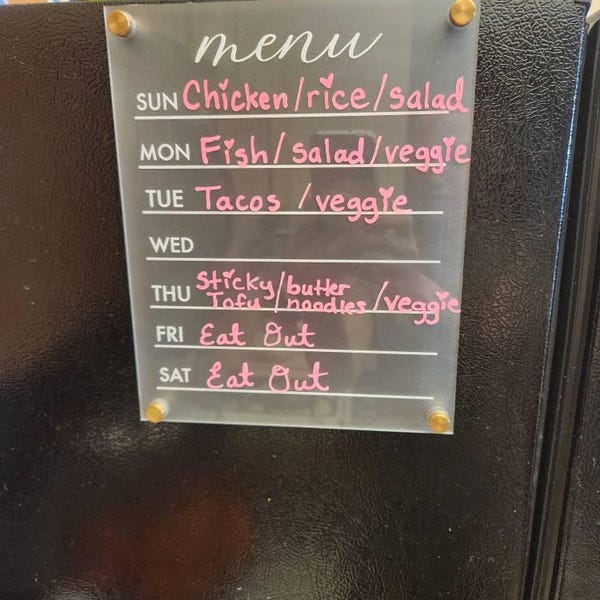 menu
SUN Chicken/rice/salad
MON Fish/salad/veggie
TUE Tacos/veggie
WED
THU Sticky Tofu/butter noodles/veggie
FRI Eat Out
SAT Eat Out